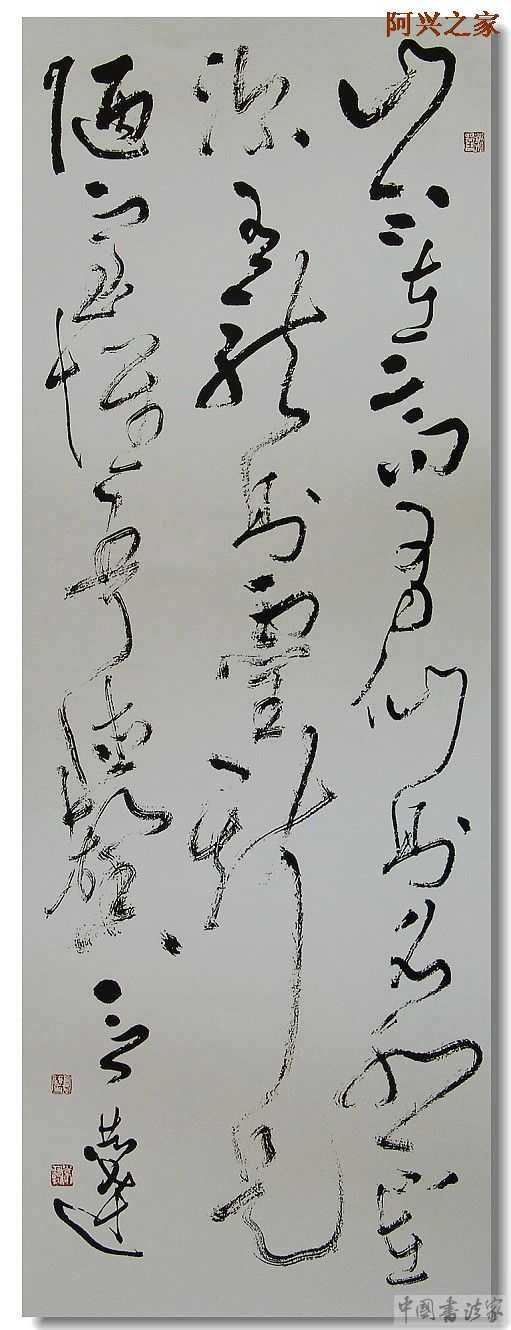 阿兴之家
山不在高有仙則名水不在
深有龍則靈斯是
陋室惟吾德馨
中國書法家